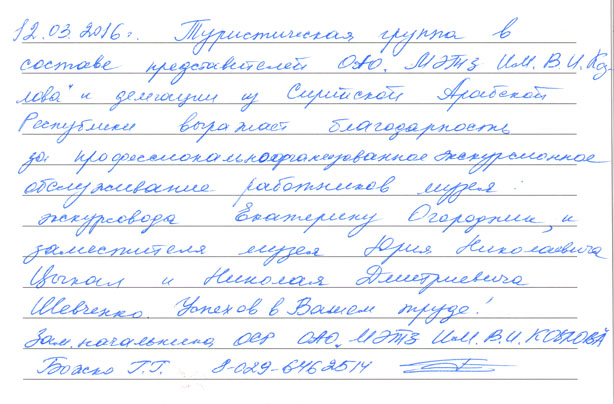 12.03.2016г. Туристическая группа в
составе представителей ОАО. МЭТЗ ИМ. В.И. Коз-
лова" и делегации из Сирийской Арабской
Республики выражает благодарность
за профессионально организованное экскурсионное
обслуживание работников музея:
экскурсовода Екатерину Огородник, и
заместителя музея Юрия Николаевича
Цыкал и Николая Дмитриевича
Шевченко. Успехов в Вашем труде!
Зам. начальника ОСР ОАО. МЭТЗ ИМ. В.И. КОЗЛОВА
Божко Г.Г. 8-029-6462514